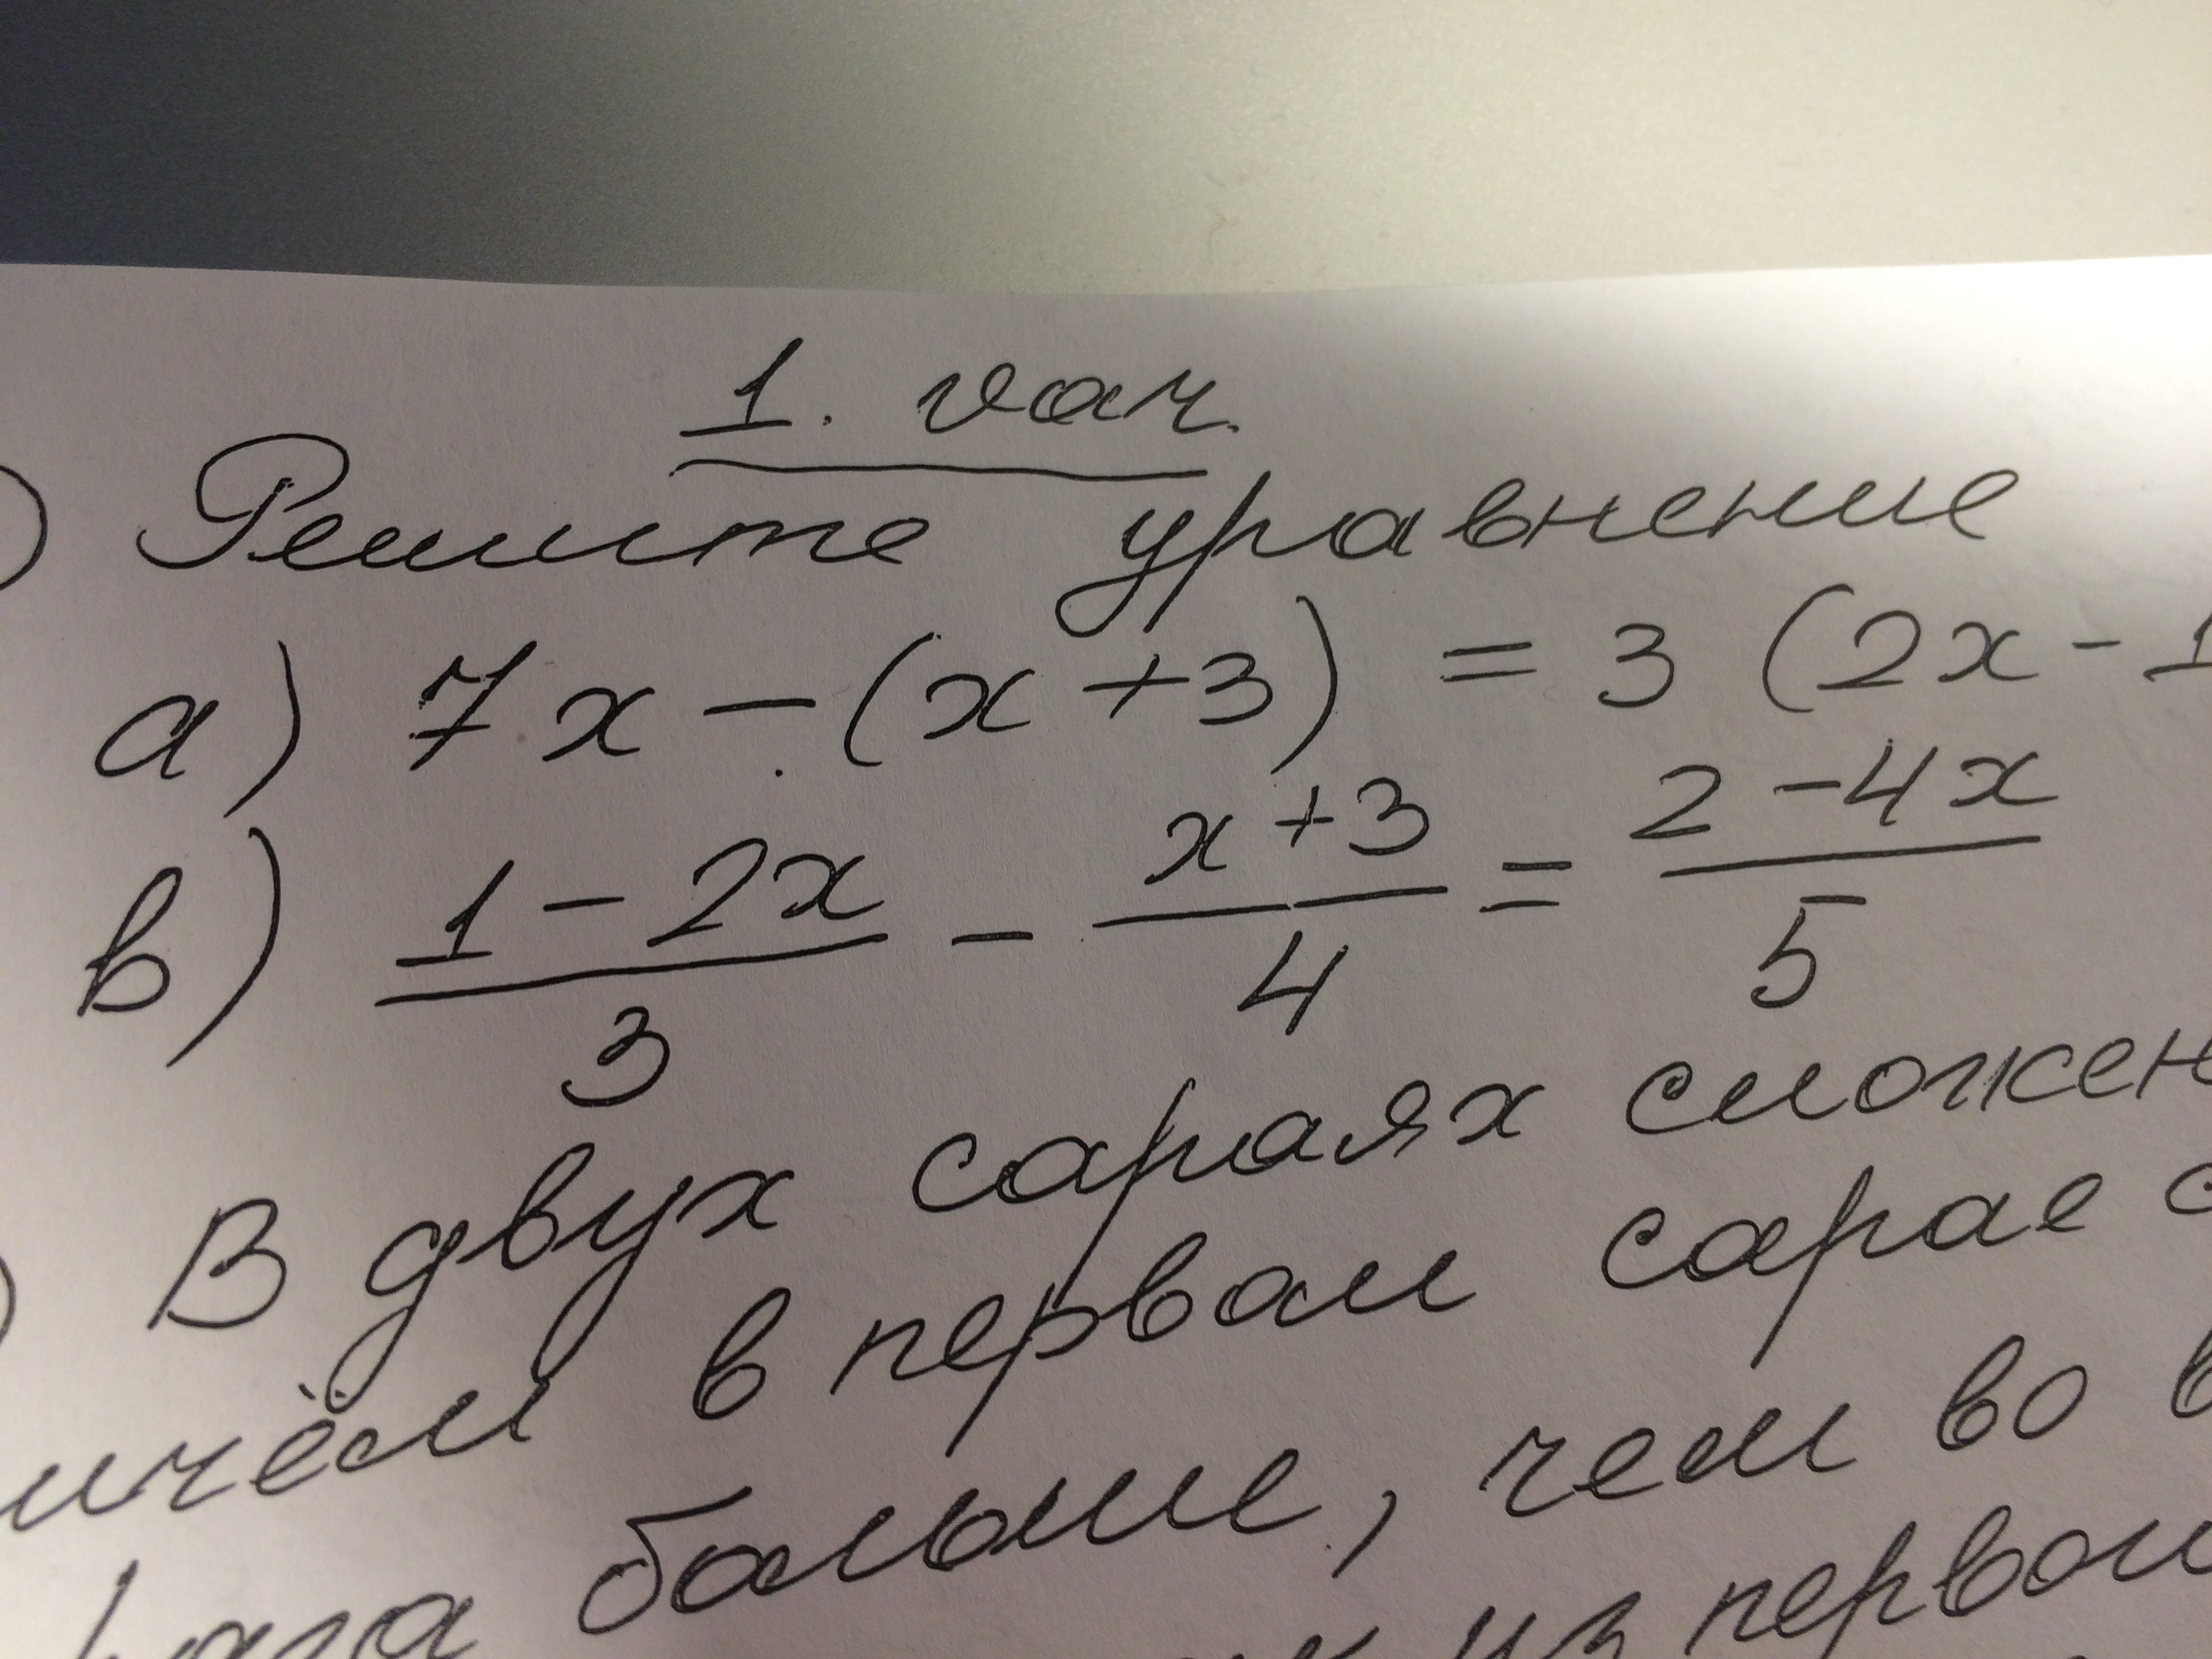 1. var.
) Решите уравнение
a) 7x - (x + 3) = 3 (2x - 1
b) \frac{1 - 2x}{3} - \frac{x + 3}{4} = \frac{2 - 4x}{5}
) В двух сараях сложен
ичём в первом сарае с
раза больше, чем во в
из первом